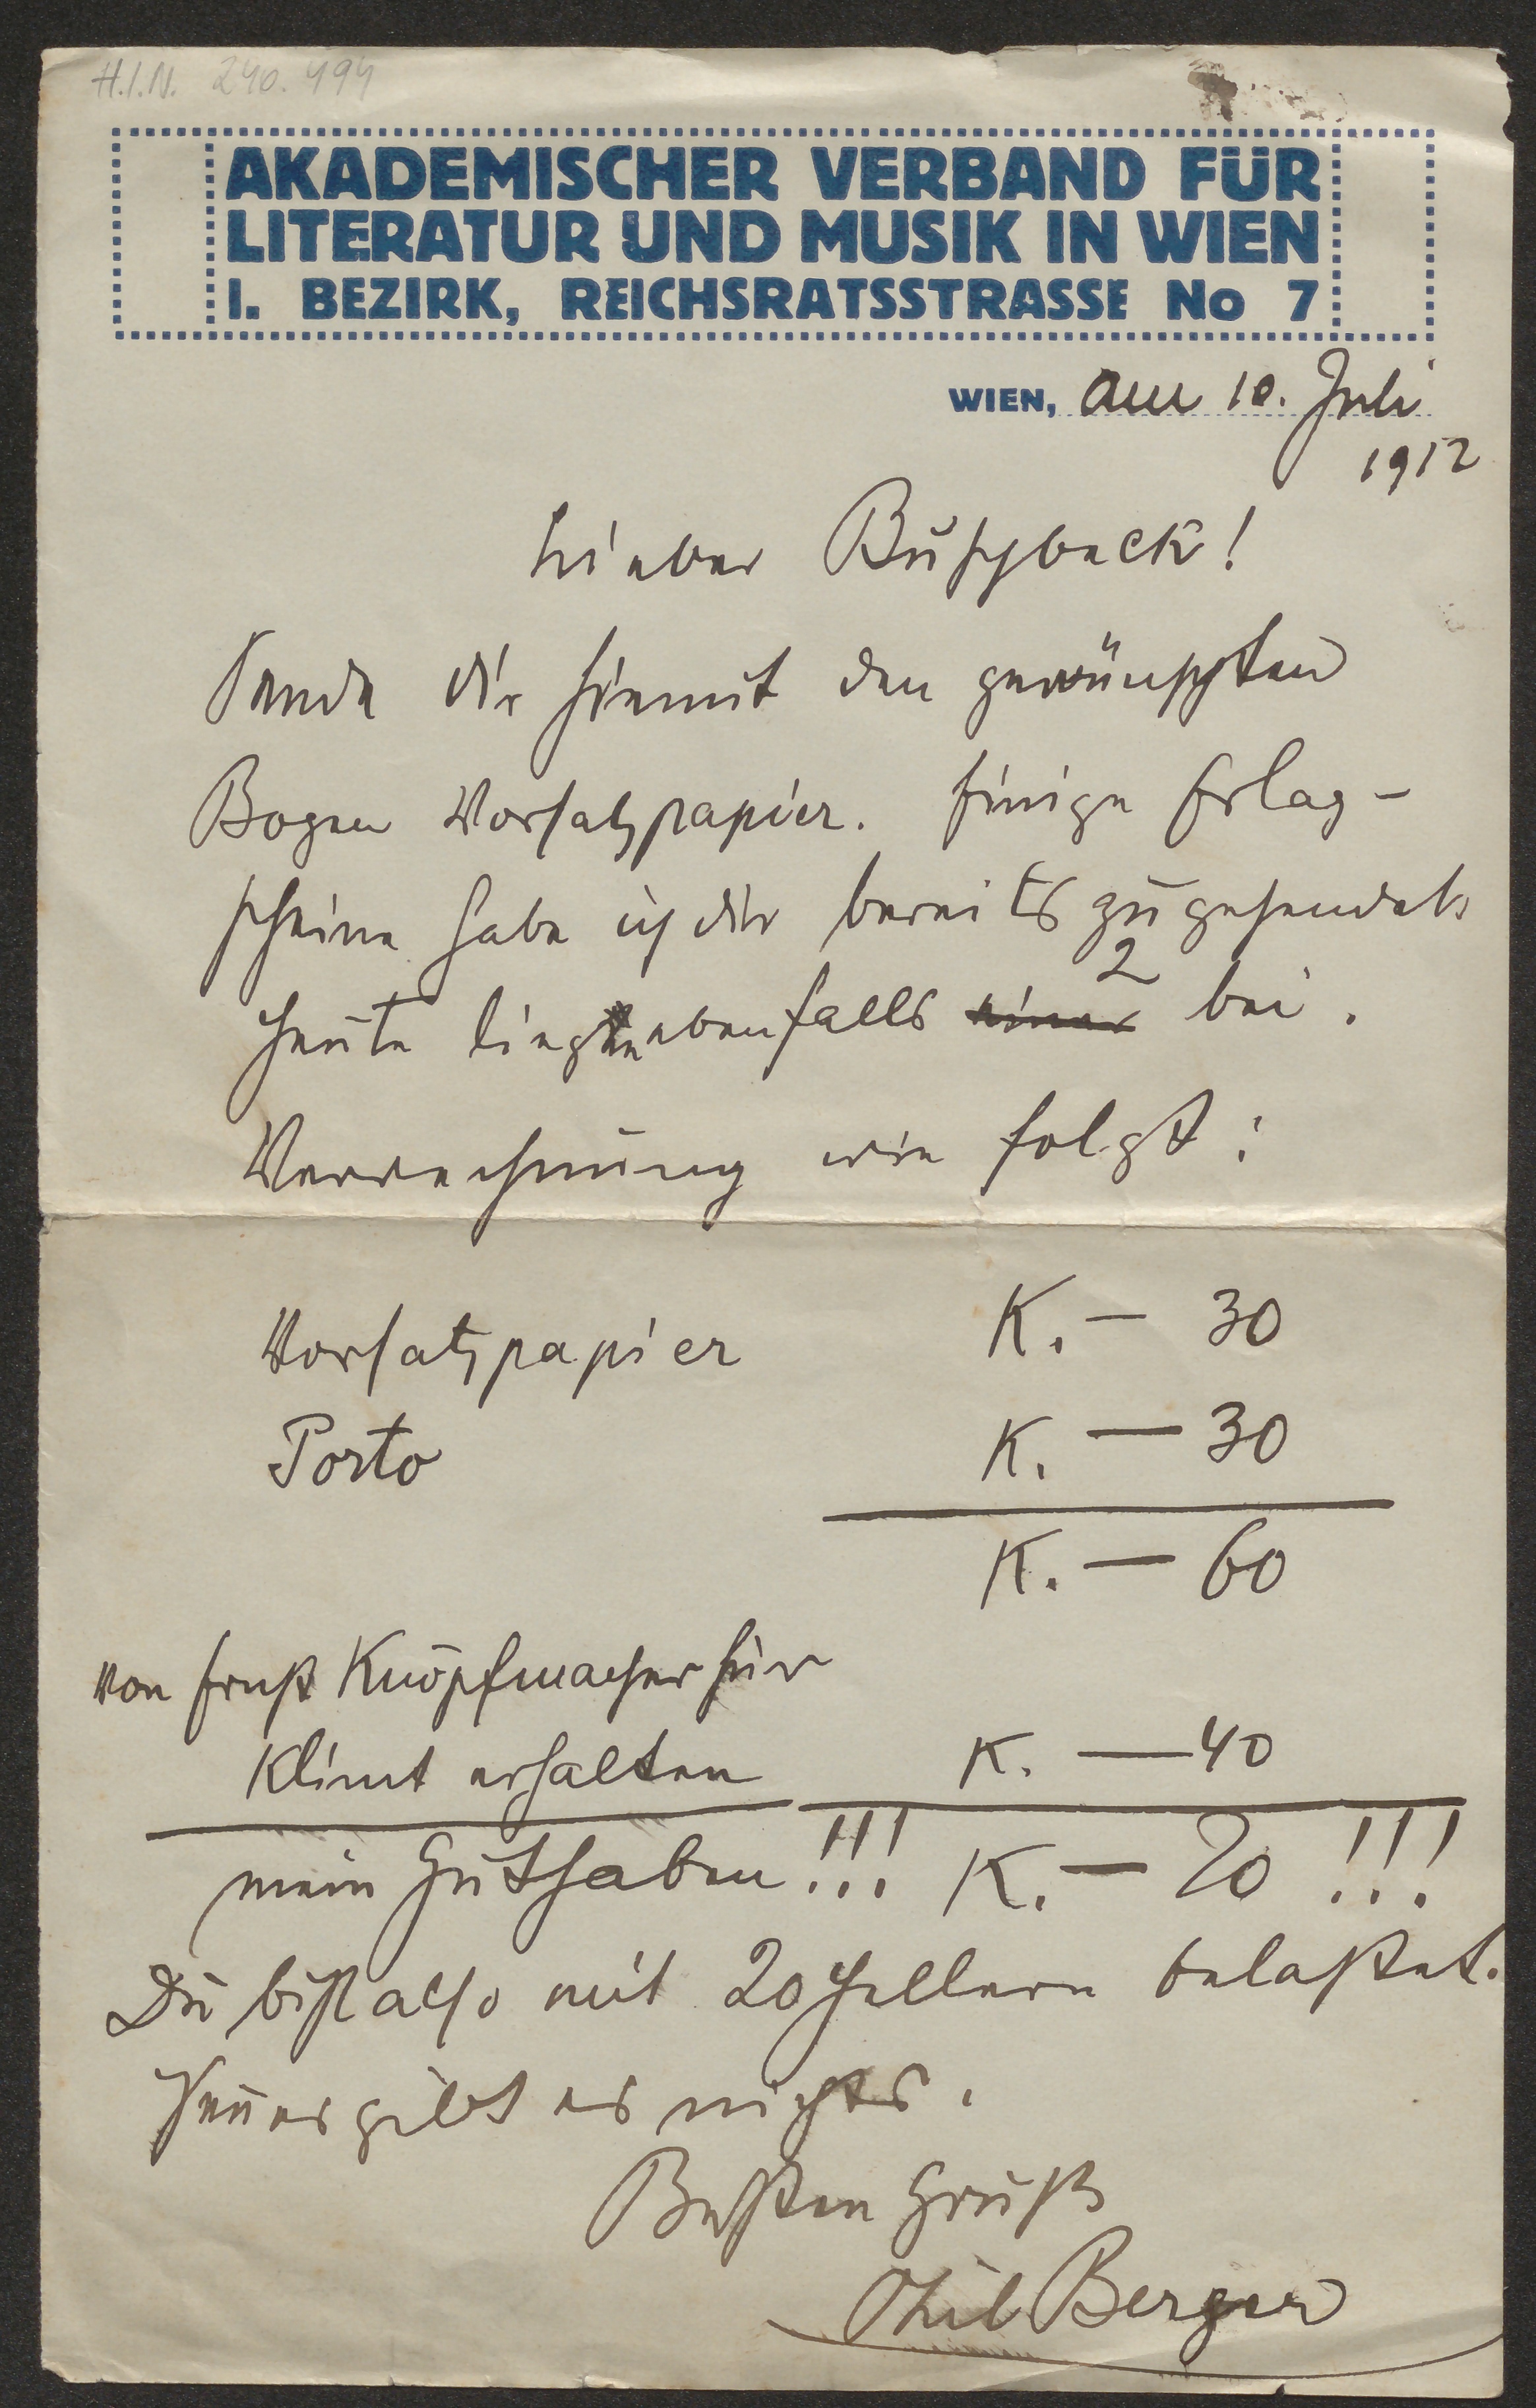 H.I.N. 240.494
AKADEMISCHER VERBAND FÜR
LITERATUR UND MUSIK IN WIEN
I. BEZIRK, REICHSRATSSTRASSE No 7
WIEN, am 10. Juli
1912
Lieber Buschbeck!
Sende dir hiemit den gewünschten
Bogen Vorsatzpapier. Einige Erlag-
scheine habe ich dir bereits zugesendet.
2
Heute liegen ebenfalls einer bei.
Verrechnung wie folgt:
Vorsatzpapier K. — 30
Porto K. — 30
K. — 60
Von Ernst Knöpfmacher für
Klimt erhalten K. — 40
mein Guthaben!!! K. — 20 !!!
Du bist also mit 20 Hellern belastet.
Neues gibt es nichts.
Besten Gruß
Berger